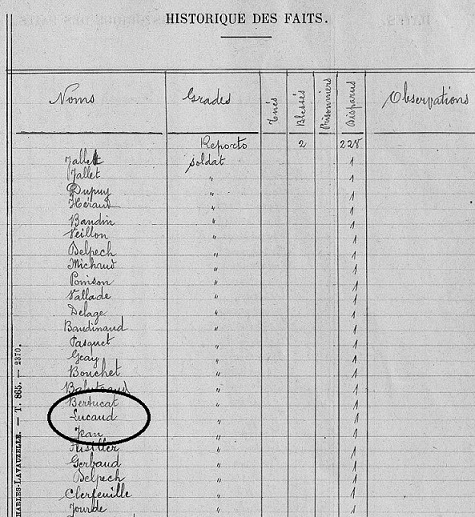 HISTORIQUE DES FAITS.
Noms Grades Tués Blessés Prisonniers Disparus Observations
Reports 2 228
Jallet soldat 1
Jallet " 1
Dupuy " 1
Héraud " 1
Baudin " 1
Veillon " 1
Delpech " 1
Michaud " 1
" 1
Vallade " 1
Delage " 1
Baudinaud " 1
Pasquet " 1
Geay " 1
Bouchet " 1
" 1
Bertucat " 1
Lucaud " 1
Jean " 1
" 1
Gerbaud " 1
Delpech " 1
Clerfeuille " 1
Jourde " 1
CHARLES-LAVAUZELLE. — T. 865. — 2370.